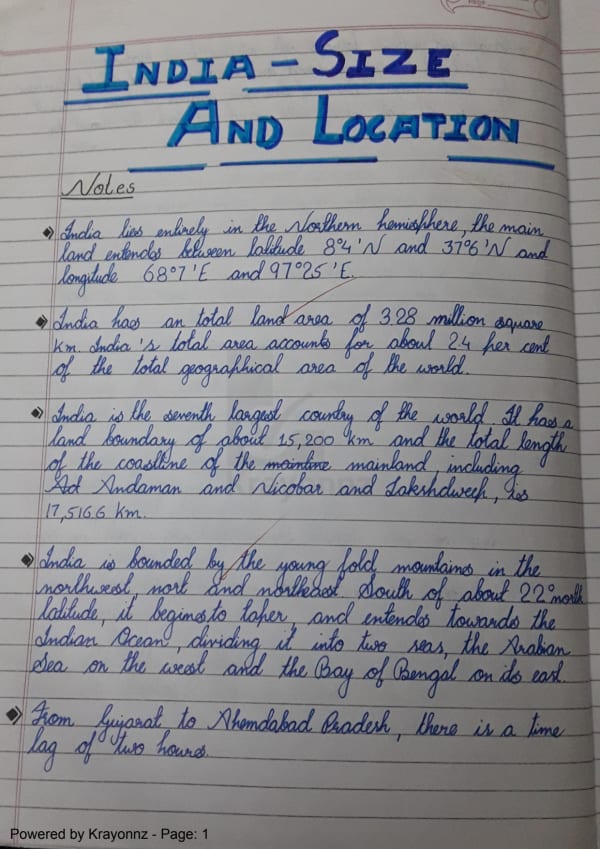 INDIA - SIZE
AND LOCATION
Notes
India lies entirely in the Northern hemisphere, the main
land entends between latitude 8°4'N and 37°6'N and
longitude 68°7'E and 97°25'E.
India has an total land area of 3.28 million square
km. India's total area accounts for about 2.4 per cent
of the total geographical area of the world.
India is the seventh largest country of the world. It has a
land boundary of about 15,200 km and the total length
of the coastline of the mainline mainland, including
Ad Andaman and Nicobar and Lakshdweep, is
17,516.6 km.
India is bounded by the young fold mountaines in the
northwest, nort and northeast. South of about 22° north
latitude, it begines to taper, and entends towards the
Indian Ocean, dividing it into two seas, the Arabian
Sea on the west and the Bay of Bengal on its east.
From Gujarat to Ahemdabad Pradesh, there is a time
lag of two hours.
Powered by Krayonnz - Page: 1